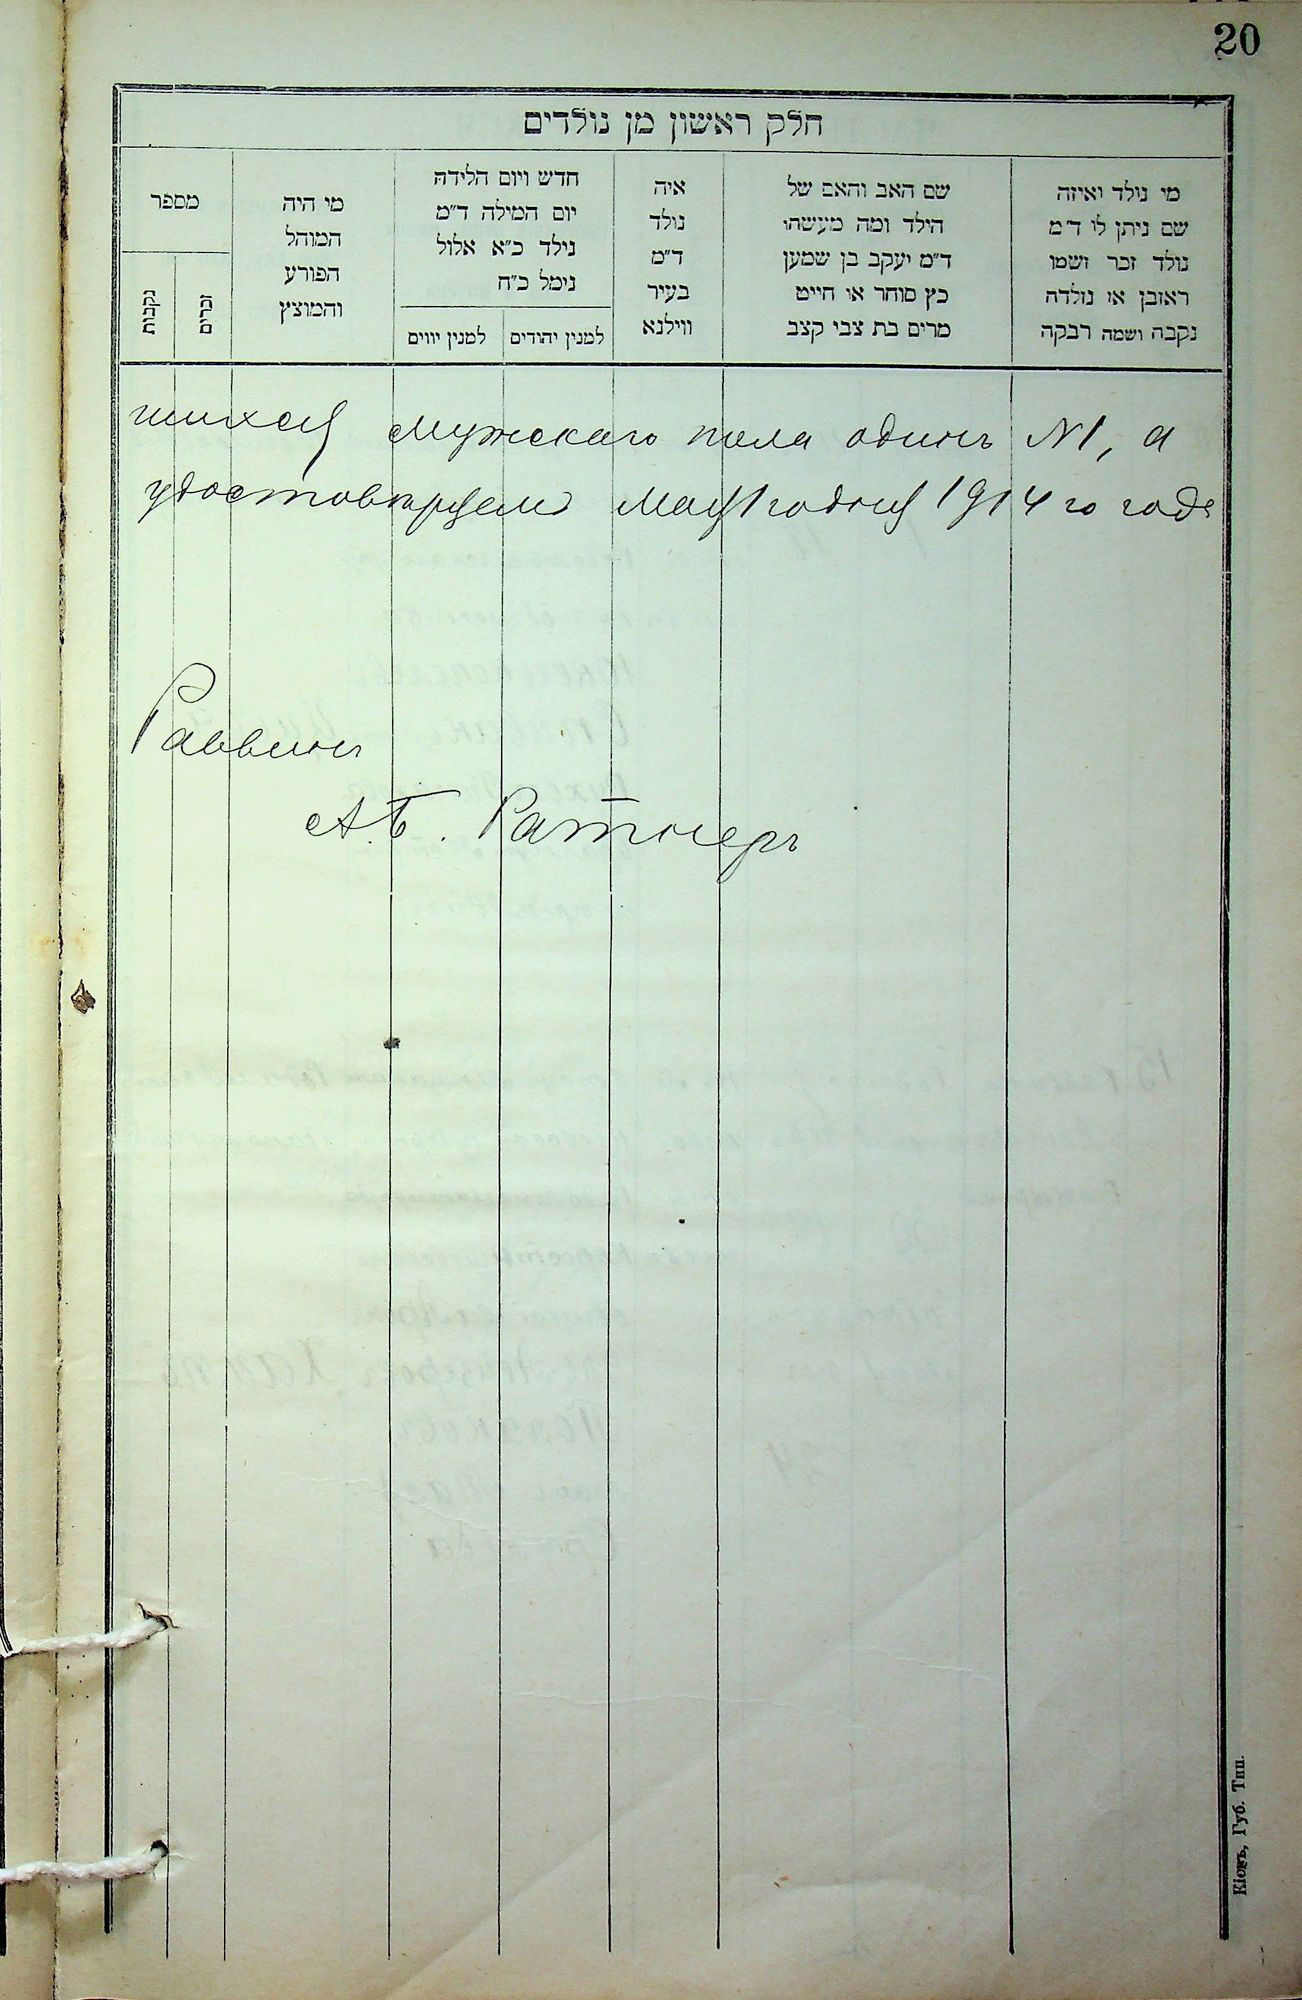 20
חלק ראשון מן נולדים
מי נולד ואיזה
שם ניתן לו ד״מ
נולד זכר ושמו
ראובן או נולדה
נקבה ושמה רבקה
שם האב והאם של
הילד ומה מעשהו
ד״מ יעקב בן שמען
כץ סוחר או חייט
מרים בת צבי קצב
איה
נולד
ד״מ
בעיר
ווילנא
חדש ויום הלידה
יום המילה ד״מ
נילד כ״א אלול
נימל כ״ח
למנין יהודים
למנין יווים
מי היה
המוהל
הפורע
והמוצץ
מספר
זכרים
נקבות
шихся мужскаго пола одинъ №1, а
удостовѣряемъ мая 1 го дня 1914 го года
Раввинъ
А.Б. Ратнеръ
Кіевъ, Губ. Тип.